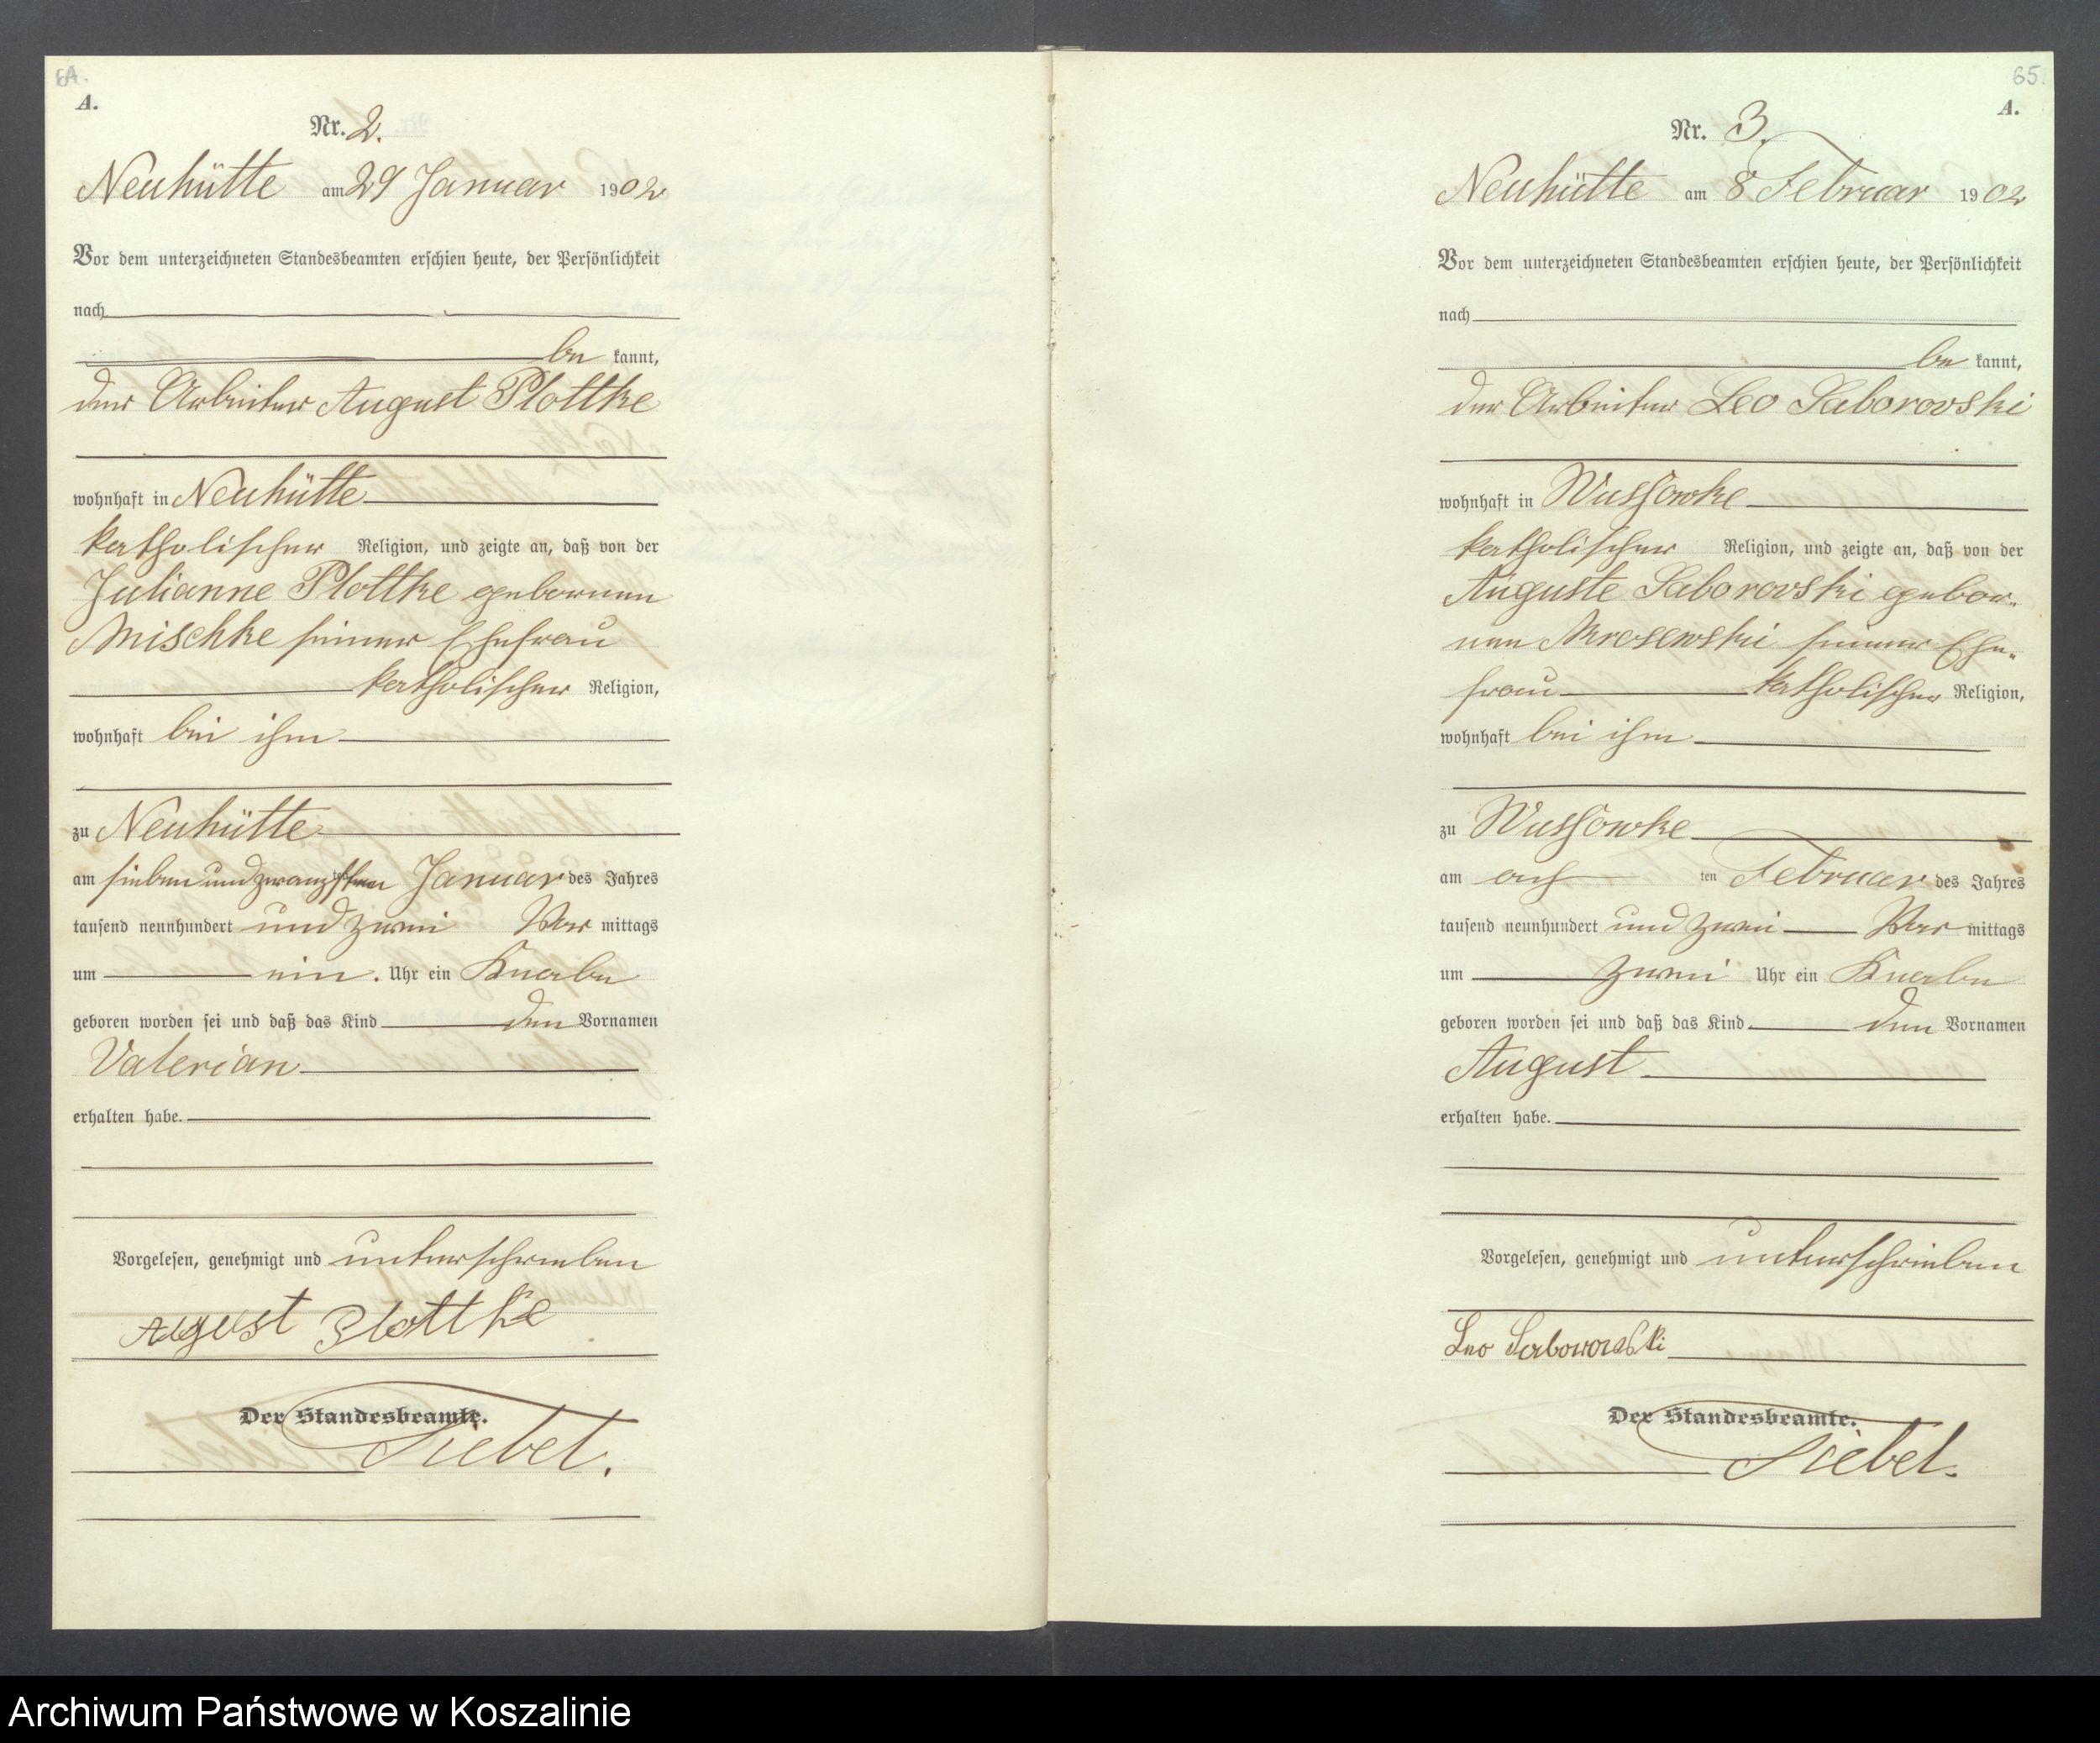 64.
A.
Nr. 2.
Neuhütte am 29 Januar 1902
Vor dem unterzeichneten Standesbeamten erschien heute, der Persönlichkeit
nach
be kannt,
der Arbeiter August Plottke
wohnhaft in Neuhütte
katholischer Religion, und zeigte an, daß von der
Julianne Plottke geborenen
Mischke seiner Ehefrau
katholischer Religion,
wohnhaft bei ihm
zu Neuhütte
am sieben und zwanzigsten Januar des Jahres
tausend neunhundert und zwei Vor mittags
um ein . Uhr ein Knabe
geboren worden sei und daß das Kind den Vornamen
Valerian
erhalten habe.
Vorgelesen, genehmigt und unterschrieben
August Plottke
Der Standesbeamte.
Siebel.
65.
A.
Nr. 3.
Neuhütte am 8 Februar 1902
Vor dem unterzeichneten Standesbeamten erschien heute, der Persönlichkeit
nach
be kannt,
der Arbeiter Leo Saborovski
wohnhaft in Wussowke
katholischer Religion, und zeigte an, daß von der
Auguste Saborovski gebor„
nen Mrosewski seiner Ehe„
frau katholischer Religion,
wohnhaft bei ihm
zu Wussowke
am ach ten Februar des Jahres
tausend neunhundert und zwei Vor mittags
um zwei Uhr ein Knabe
geboren worden sei und daß das Kind den Vornamen
August
erhalten habe.
Vorgelesen, genehmigt und unterschrieben
Leo Saborowski
Der Standesbeamte.
Siebel.
Archiwum Państwowe w Koszalinie